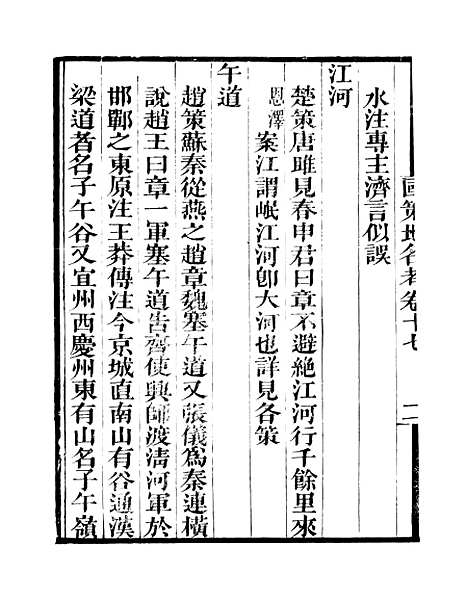 國策地名考卷十七 二
水注專主濟言似誤
江河
楚策唐雎見春申君曰章不避絶江河行千餘里來
恩澤案江謂岷江河卽大河也詳見各策
午道
趙策蘇秦從燕之趙章魏塞午道又張儀爲秦連橫
說趙王曰章一軍塞午道告齊使興師渡淸河軍於
邯鄲之東原注王莽傳注今京城直南山有谷通漢
梁道者名子午谷又宜州西慶州東有山名子午嶺